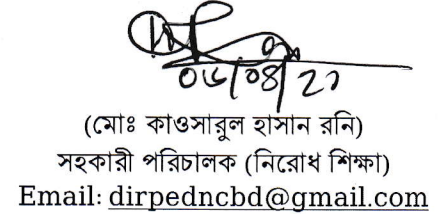 ০৬/০৪/২১
(মোঃ কাওসারুল হাসান রনি)
সহকারী পরিচালক (নিরোধ শিক্ষা)
Email: dirpedncbd@gmail.com